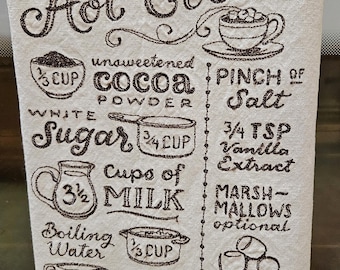 Hot Cocoa
1/3 CUP
unsweetened
cocoa
POWDER
WHITE
Sugar
3/4 CUP
3 1/2
Cups of
MILK
Boiling
Water
1/3 CUP
PINCH OF
Salt
3/4 TSP
Vanilla
Extract
MARSH-
MALLOWS
optional